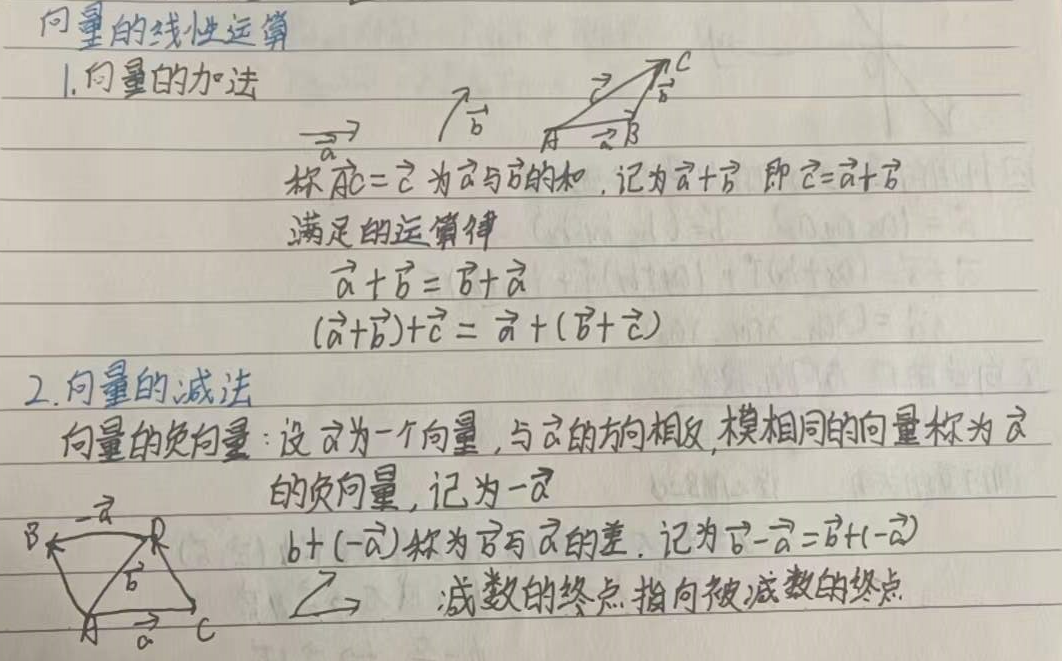 向量的线性运算
1.向量的加法
a⃗ b⃗ A a⃗ B b⃗ C c⃗
称 A⃗C = c⃗ 为 a⃗ 与 b⃗ 的和，记为 a⃗ + b⃗ 即 c⃗ = a⃗ + b⃗
满足的运算律
a⃗ + b⃗ = b⃗ + a⃗
(a⃗ + b⃗) + c⃗ = a⃗ + (b⃗ + c⃗)
2.向量的减法
向量的负向量：设 a⃗ 为一个向量，与 a⃗ 的方向相反，模相同的向量称为 a⃗
的负向量，记为 -a⃗
b + (-a⃗) 称为 b⃗ 与 a⃗ 的差．记为 b⃗ - a⃗ = b⃗ + (-a⃗)
减数的终点指向被减数的终点
B -a⃗ b⃗ A a⃗ C